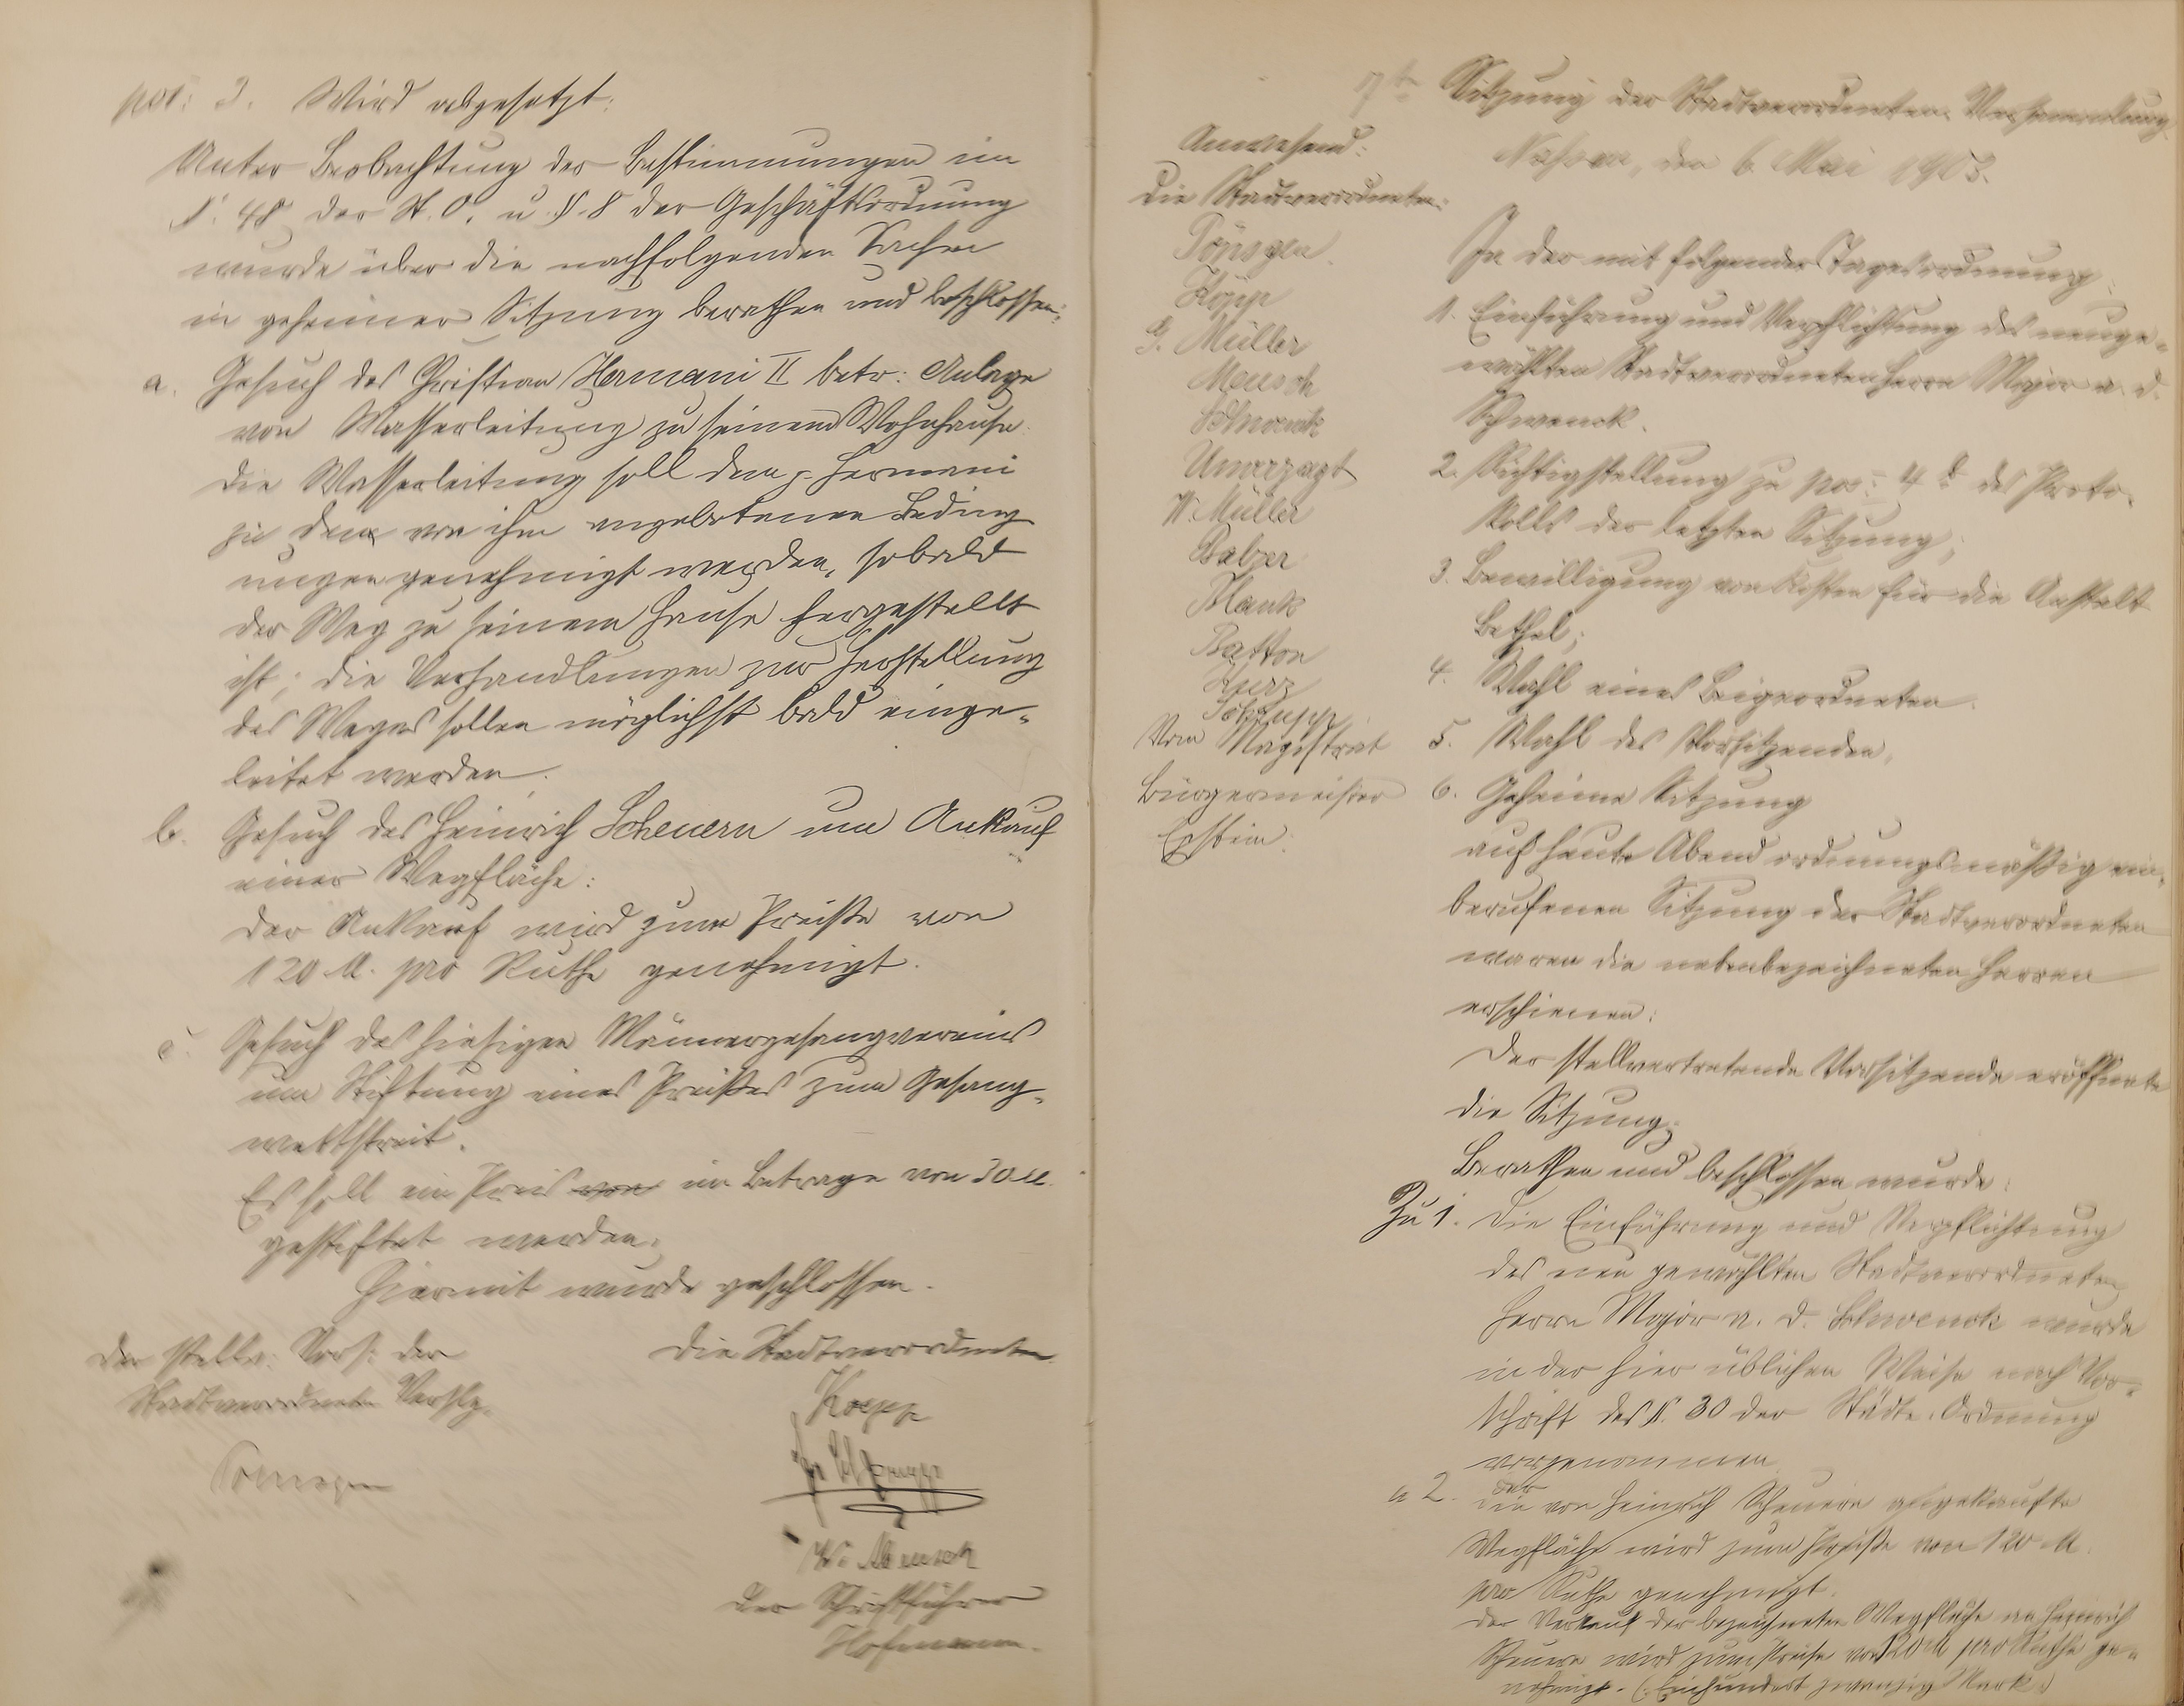 pos: 3. Wird abgesetzt:
Unter Beobachtung der Bestimmungen im
§. 48 der St. O. u. §. 8 der Geschäftsordnung
wurde über die nachfolgenden Sachen
in geheimer Sitzung berathen und beschlossen:
a. Gesuch des Christian Hermani II betr: Anlage
von Wasserleitung zu seinem Wohnhause.
Die Wasserleitung soll dem p. Hermani
zu den von ihm angebotenen Beding
ungen genehmigt werden, sobald
der Weg zu seinem Hause hergestellt
ist; die Verhandlungen zur Herstellung
des Weges sollen möglichst bald einge-
leitet werden.
b. Gesuch des Heinrich Scheuern um Ankauf
einer Wegfläche:
Der Ankauf wird zum Preiße von
120 M. pro Ruthe genehmigt.
c. Gesuch des hiesigen Männergesangvereins
um Stiftung eines Preißes zum Gesang-
wettstreit.
Es soll ein Preis von im Betrage von 30 M.
gestiftet werden.
Hiermit wurde geschlossen.
Der stellv: Vors: der
Stadtverordneten Verslg.
Die Stadtverordneten
Koepp
W. Mensch
Der Schriftführer
Hofmann.
7te Sitzung der Stadtverordneten-Versammlung.
Nassau, den 6. Mai 1903.
Anwesend:
Die Stadtverordneten:
Pönsgen
Köpp
G. Müller
Mensch
Schwenck
Unverzagt
W. Müller
Balzer
Plank
Batton
Kurz
Vom Magistrat
Bürgermeister
Epstein.
In der mit folgender Tagesordnung:
1. Einführung und Verpflichtung des neuge-
wählten Stadtverordneten Herrn Major a. D.
Schwenck.
2. Richtigstellung zu pos: 4 b des Proto-
kolls der letzten Sitzung;
3. Bewilligung von Kosten für die Anstalt
Bethel;
4. Wahl eines Beigeordneten.
5. Wahl des Vorsitzenden.
6. Geheime Sitzung
auf heute Abend ordnungsmäßig ein-
berufenen Sitzung der Stadtverordneten
waren die nebenbezeichneten Herren
erschienen:
Der stellvertretende Vorsitzende eröffnete
die Sitzung.
Berathen und beschlossen wurde:
Zu 1. Die Einführung und Verpflichtung
des neu gewählten Stadtverordneten
Herrn Major a. D. Schwenck wurde
in der hier üblichen Weise nach Vor-
schrift des §. 30 der Städte-Ordnung
vorgenommen.
u 2. Die von Heinrich Scheuern angekaufte
Wegfläche wird zum Preiße von 120 M.
pro Ruthe genehmigt.
Der Verkauf der bezeichneten Wegfläche an Heinrich
Scheuern wird zum Preise von 120 M pro Ruthe ge-
nehmigt. (: Einhundert zwanzig Mark:)